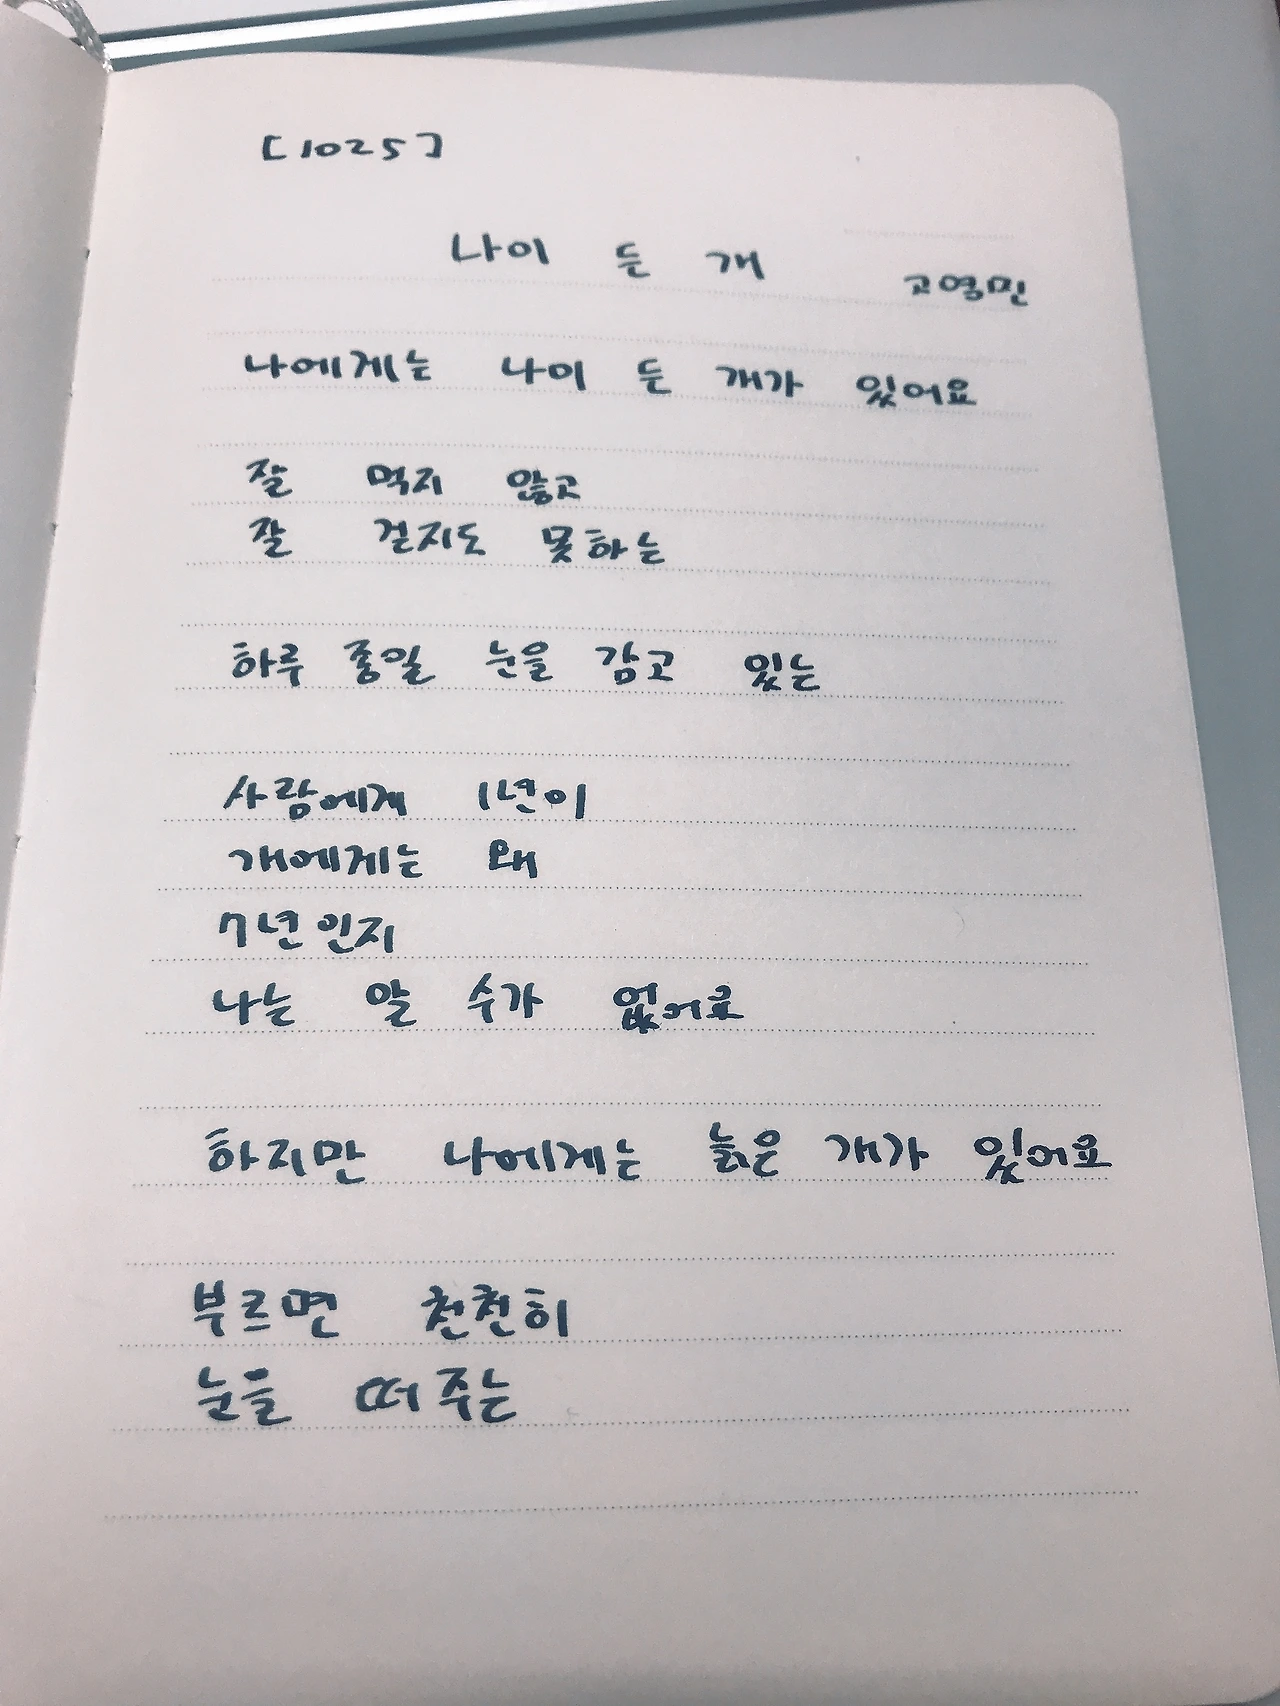 [1025]
나이 든 개
고영민
나에게는 나이 든 개가 있어요
잘 먹지 않고
잘 걷지도 못하는
하루 종일 눈을 감고 있는
사람에게 1년이
개에게는 왜
7년인지
나는 알 수가 없어요
하지만 나에게는 늙은 개가 있어요
부르면 천천히
눈을 떠주는